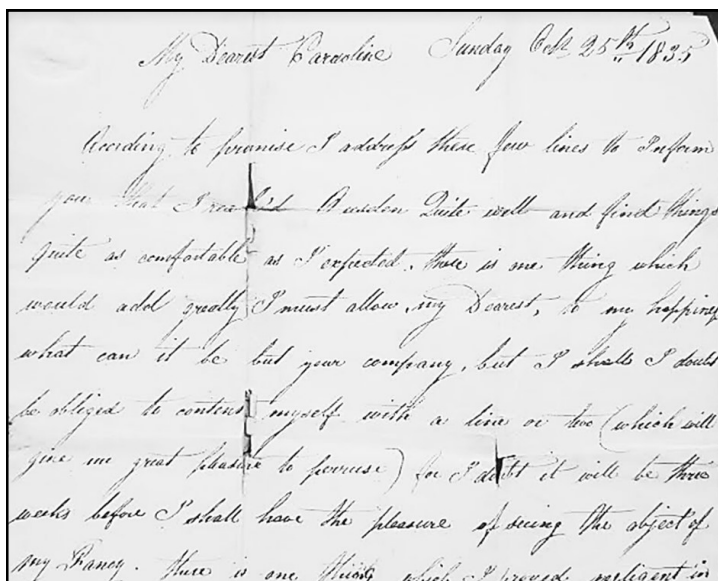 My Dearest Caroline Sunday Octr 25th 1835
According to promise I address these few lines to Inform
you that I reach'd Quite well and find things
quite as comfortable as I expected. there is one thing which
would add greatly I must allow, my Dearest, to me happiness
what can it be but your company, but I shall I doubt
be obliged to content myself with a line or two (which will
give me great pleasure to peruse) for I doubt it will be three
weeks before I shall have the pleasure of seeing the object of
my Fancy. there is one thing which I proved negligent in